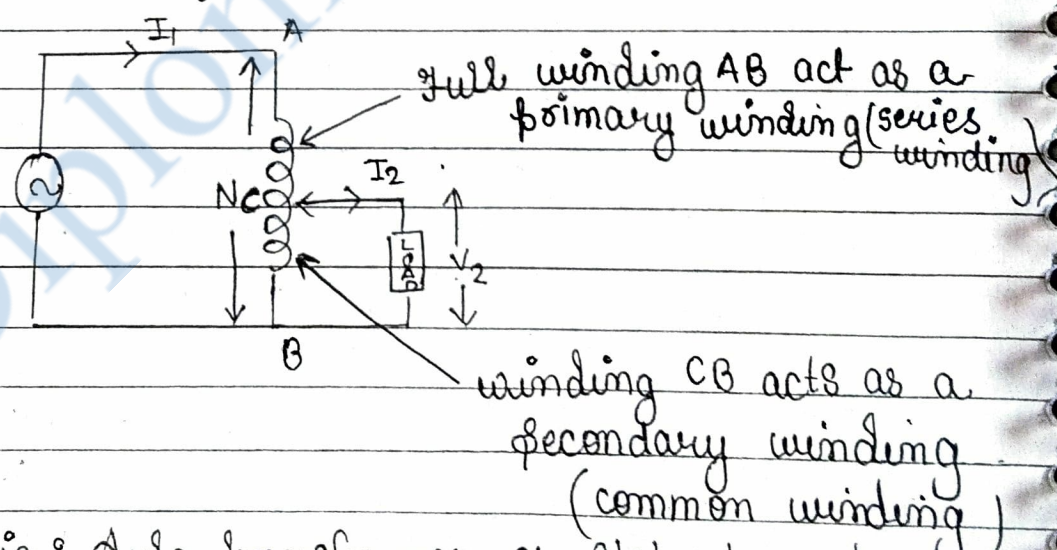 I1 A
Full winding AB act as a
primary winding (series
winding)
N C I2
LOAD
V2
B
winding CB acts as a
secondary winding
(common winding)